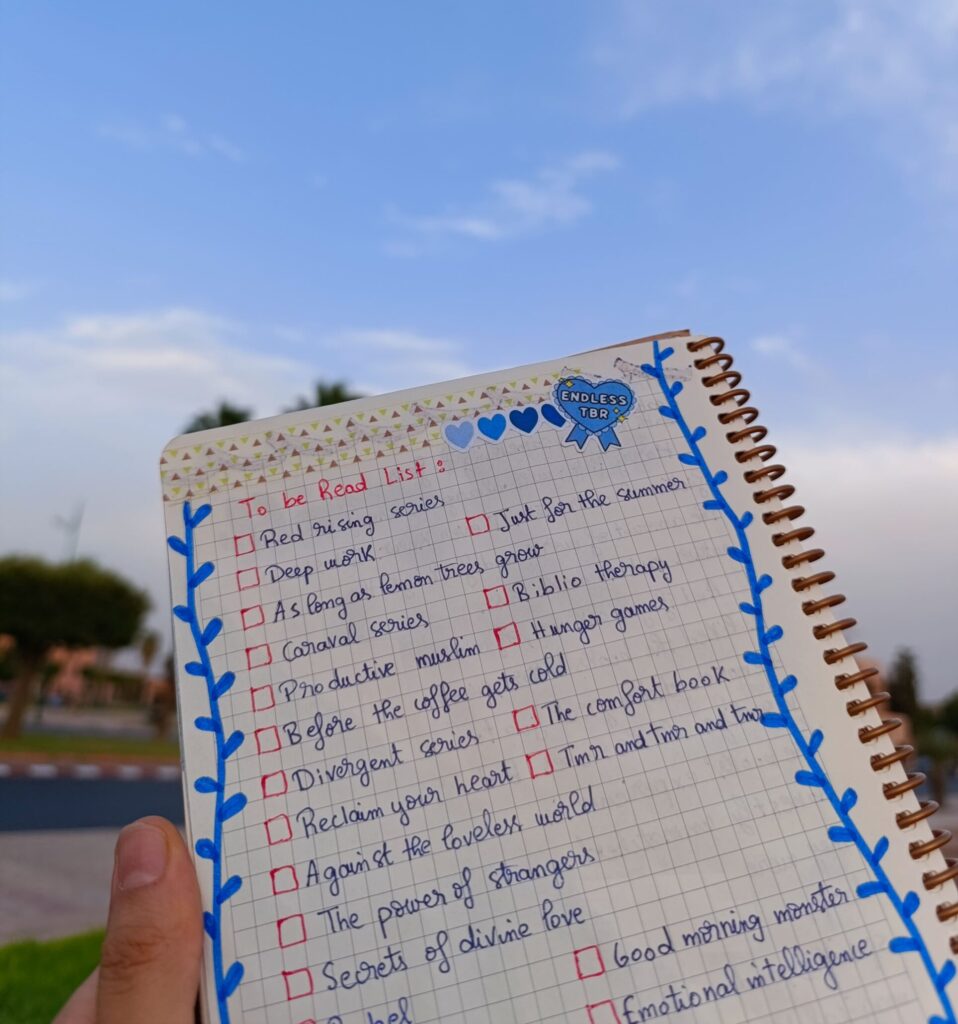 ENDLESS
TBR
To be Read List :
Red rising series
Just for the summer
Deep work
As long as lemon trees grow
Biblio therapy
Caraval series
Hunger games
Productive muslim
Before the coffee gets cold
The comfort book
Divergent series
Tmr and tmr and tmr
Reclaim your heart
Against the loveless world
The power of strangers
Secrets of divine love
Good morning monster
Emotional intelligence